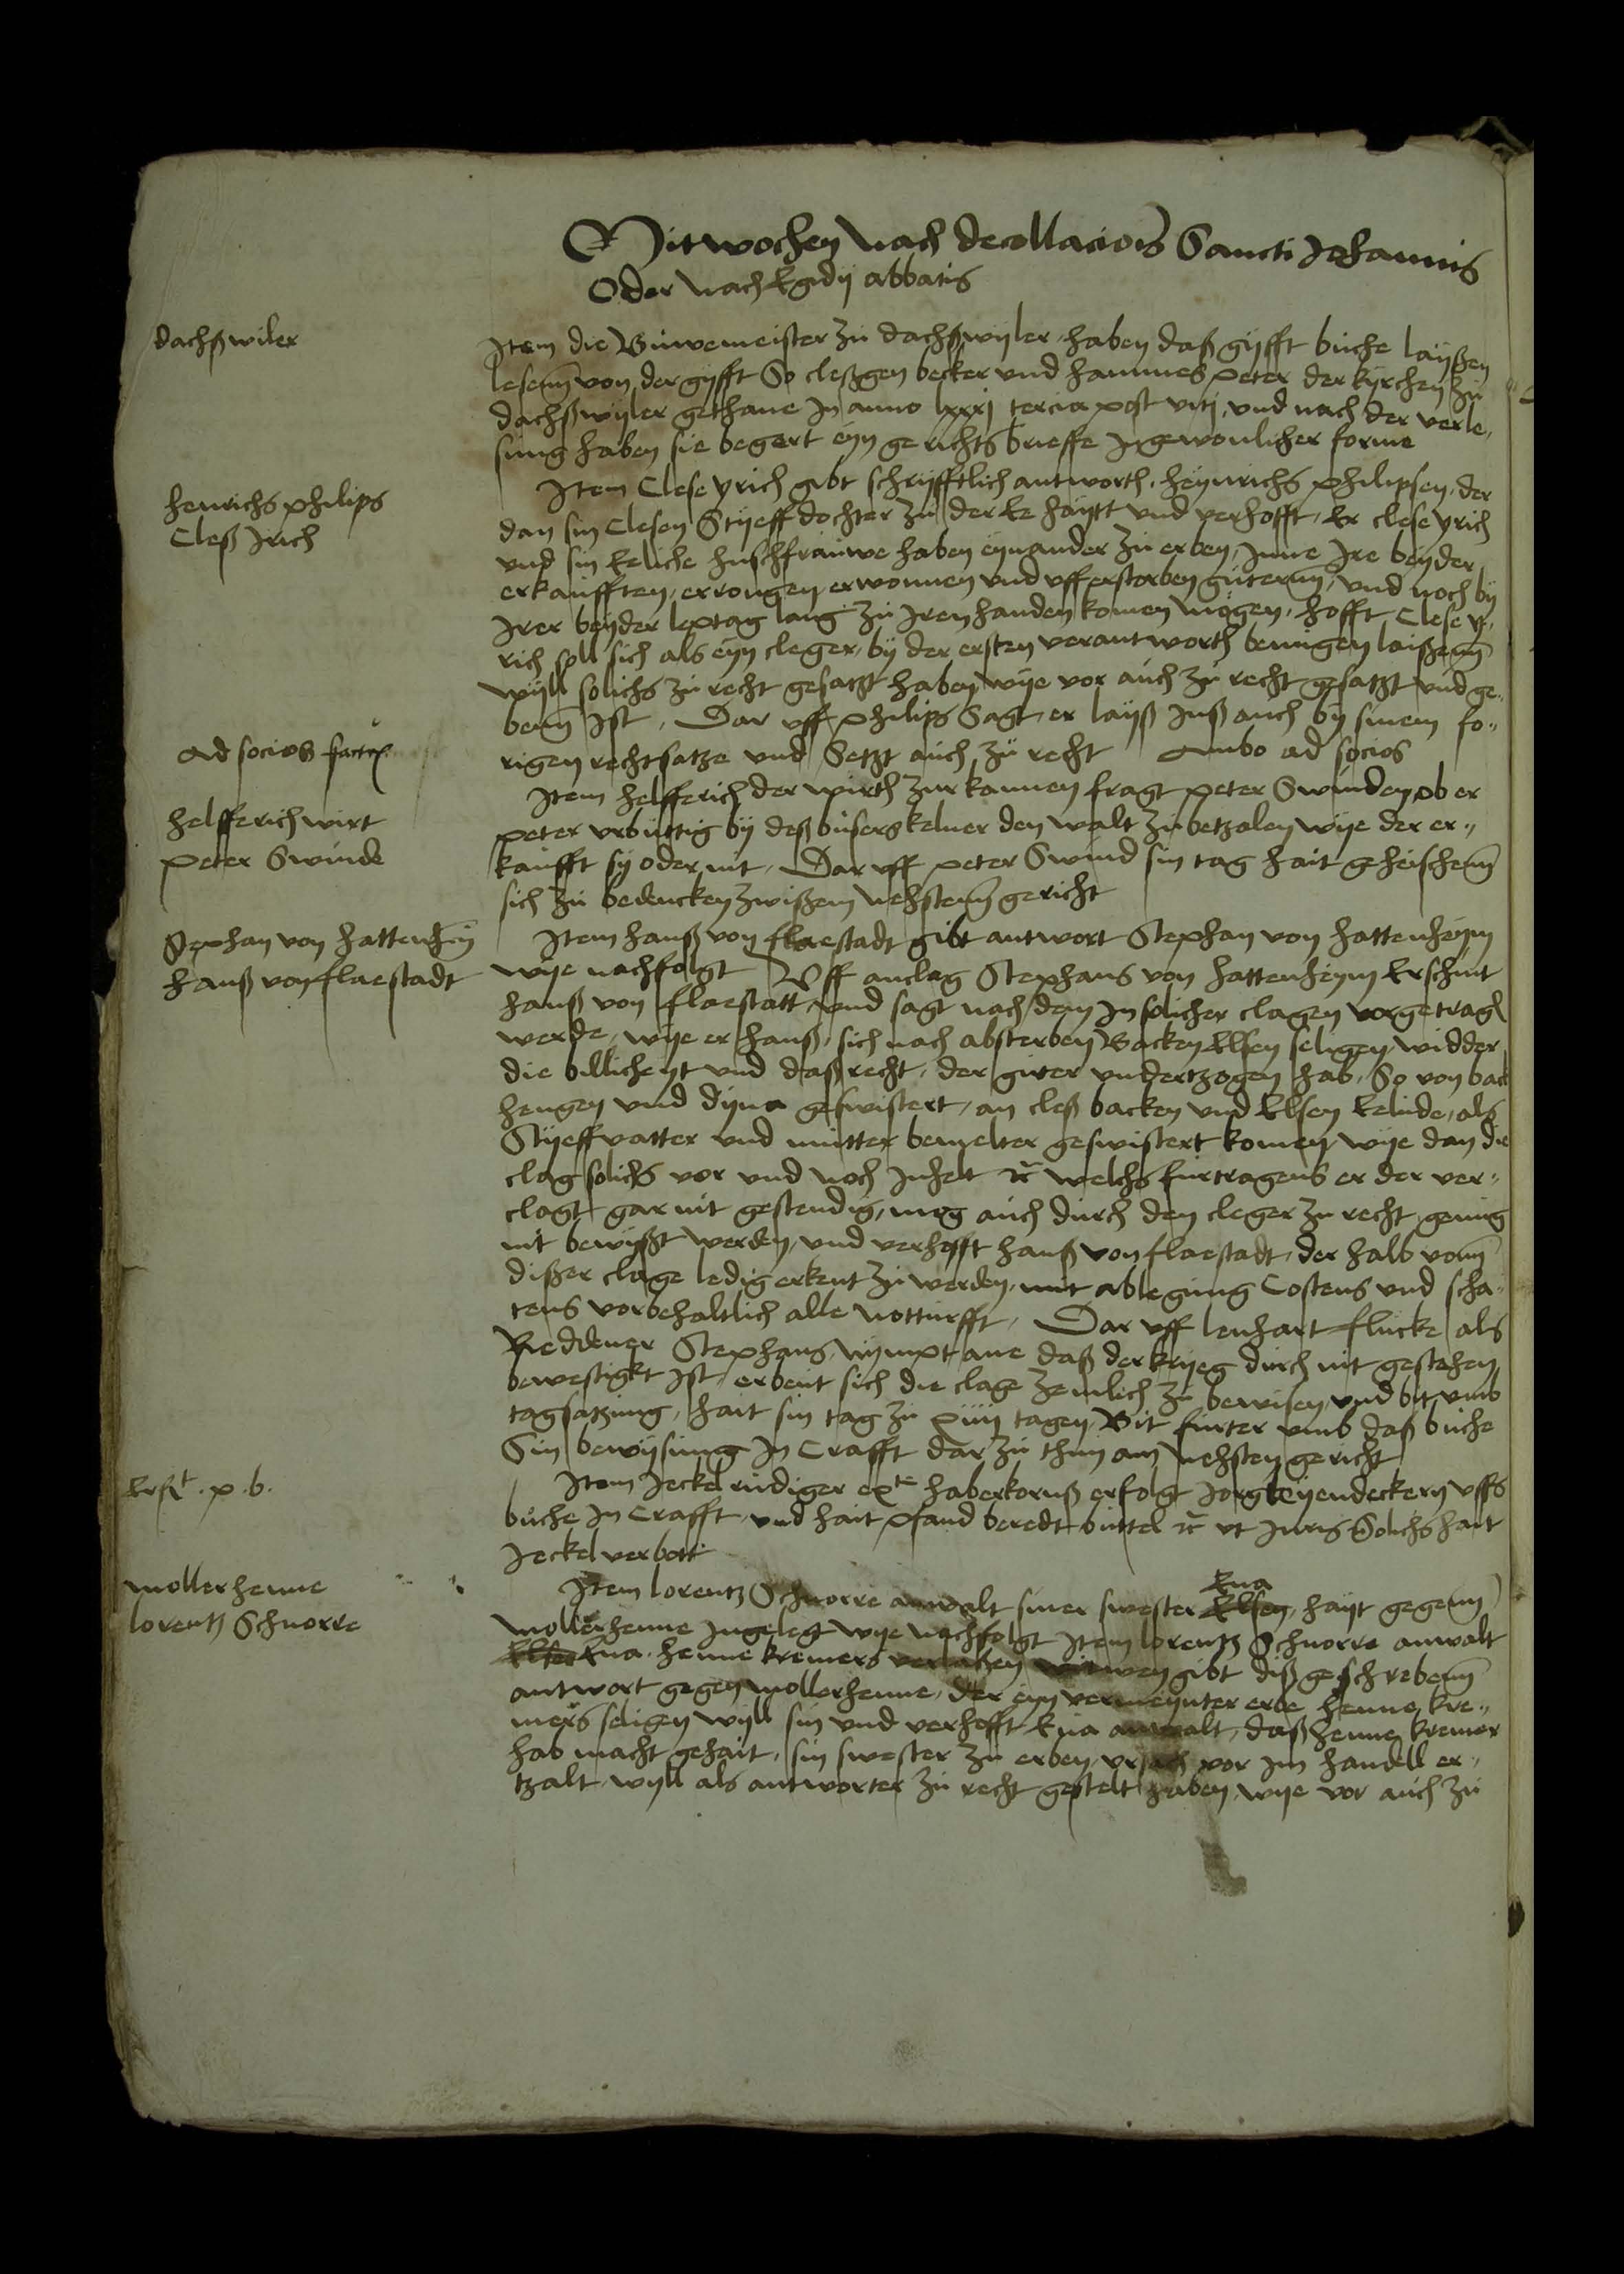 Mitwochen nach decollacionis Sancti Johannis
Oder nach Egidij abbatis
dachßwiler
Item die Buwemeister zu dachßwyler haben daß gyfft buche layßen
lesenn von der gyfft So cleßgen becker und hannnes peter der kyrchen zu
dachßwyler gethane In anno lxxxj tercia post viti, und nach der verle,
sung haben sie begert eyn gerichts brieffe In gewonlicher forme
henrichs philips
Cleß Jrich
Item Clese yrich gibt schryfftlich antworth heynrichs philipsen, der
dan sin Clesen Styeff dochter zu der Ee hayt und verhofft Er clese yrich
und sin Eeliche hußfrauwe haben eynander zu erben, Inne Ire beyder
erkaufften, errongen erwonnen und ufferstorben guternn, und noch by
Irer beyder leptag lang zu Iren handen komen mogen, hofft Clese y,
rich soll sich als eyn cleger, by der ersten verantworth benugen laißenn
wyll solichs zu recht gesatzt haben wye vor auch zu recht gesatzt und ge,
benn ist, Dar uff philips Sagt er layß Inß auch by sinem fo,,
Ad socios factum
rigen rechtsatze und Setzt auch zu recht Ambo ad socios
helfferich wirt
peter Swinde
Item helfferich der wirth zur kannen fragt peter Swinden ob er
peter urbuttig by deß busers kelner den walt zu betzalen wye der er,,
kaufft sy oder nit, Dar uff peter Swind sin tag hait geheischenn
sich zu bedencken zwißem nehstenn gericht
Stephan von hattenheym
hanß von flaestadt
Item hanß von flaestadt gibt antwort Stephan von hattenheym
wye nachfolgt Uff anclag Stephans von hattenheym Erschint
hanß von flaestatt und sagt nach dem In solicher clagen vorgetragen
werde, wye er hanß, sich nach absterben Backen Elsen seligen, widder
die billicheyt und daß recht, der guter undertzogen hab, So von back
hengen und dyna geswistert, an cleß backen und Elsen Eelude, als
Styeffvatter und mutter bemelter geswistert komen, wye dan die
clag solichs vor und noch Inhelt etc welchs furtragens er der ver,,
clagt gar nit gestendig, mog auch durch den cleger zu recht genug
nit bewyßt werden, und verhofft hanß von flaestadt, der halb vonn
dißer clage ledig erkent zu werden, mit ablegung Costens und scha,
tens vorbehaltlich alle notturfft, Dar uff lenhart flucke als
Reddener Stephans, nympt ane daß der kryeg durch nit gestehen
bevestigkt ist, erbeut sich die clage zemlich zu bewisen, und bit umb
tagsatzung, hait sin tag zu xiiij tagen, Bit furter umb daß buche
Sin bewysung In Crafft dar zu thun am nehsten gericht
Erft. p. b.
Item Jeckel rudiger ex te haberkornß erfolgt Jorg leyendeckern uffs
buche In Crafft, und hait pfand beredt buttel etc ut Juris Solichs hait
Jeckel verbott
mollerhenne
lorentz Schnorre
Item lorentz Schnorre anwalt siner swester Elsen Eua, hayt gegenn
mollerhenne Ingelegt wye nachfolgt Item lorentz Schnorre anwalt
Elsen Eua. henne kremers verlaßen witwen gibt diß geschrebenn
antwort gegen mollerhenne, der eyn vermeynter erbe henne kre,,
mers seligen wyll sin und verhofft Eua anwalt, daß henne kremer
hab macht gehait, sin swester zu erben, ursach vor im handell er,,
tzalt, wyll als antworter zu recht gestelt haben, wye vor auch zu